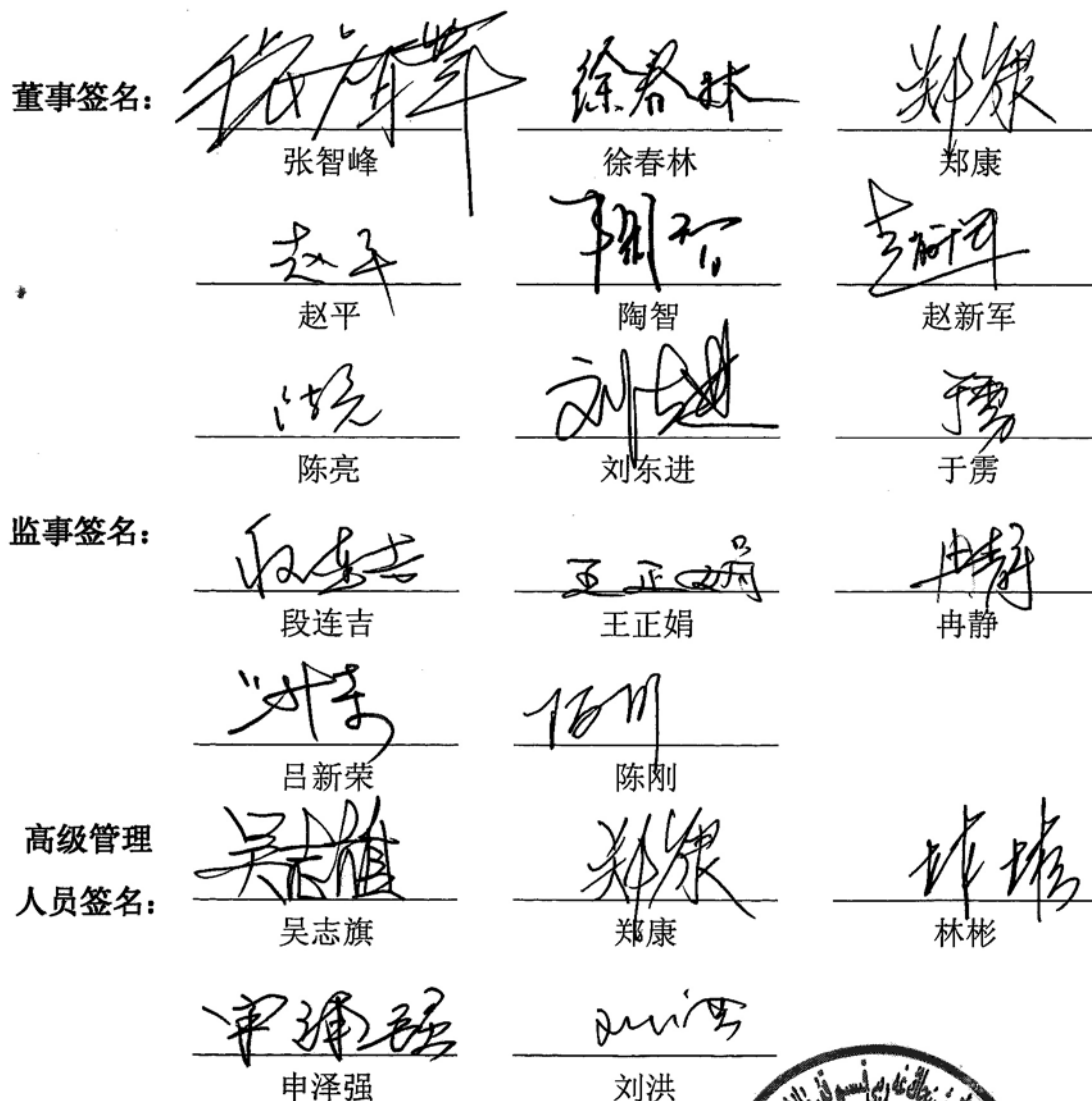 董事签名：
张智峰 徐春林 郑康
赵平 陶智 赵新军
陈亮 刘东进 于雳
监事签名：
段连吉 王正娟 冉静
吕新荣 陈刚
高级管理
人员签名：
吴志旗 郑康 林彬
申泽强 刘洪